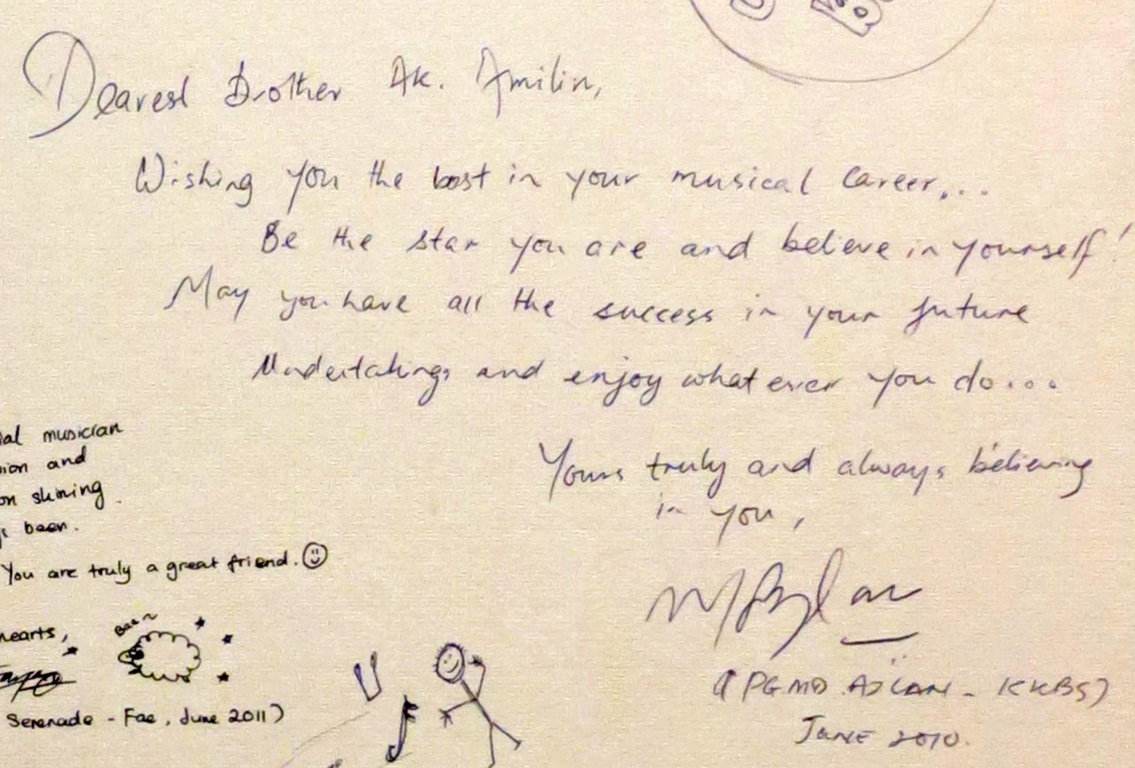 Dearest Brother Ak. Amilin,
Wishing you the best in your musical career...
Be the star you are and believe in yourself!
May you have all the success in your future
Undertakings and enjoy whatever you do...
Yours truly and always believing
in you,
(PGMD. AZLAN - KKBS)
June 2010.
al musician
ion and
on shining.
s been.
You are truly a great friend.
hearts,
Baa~
Serenade - Fae, June 2011)